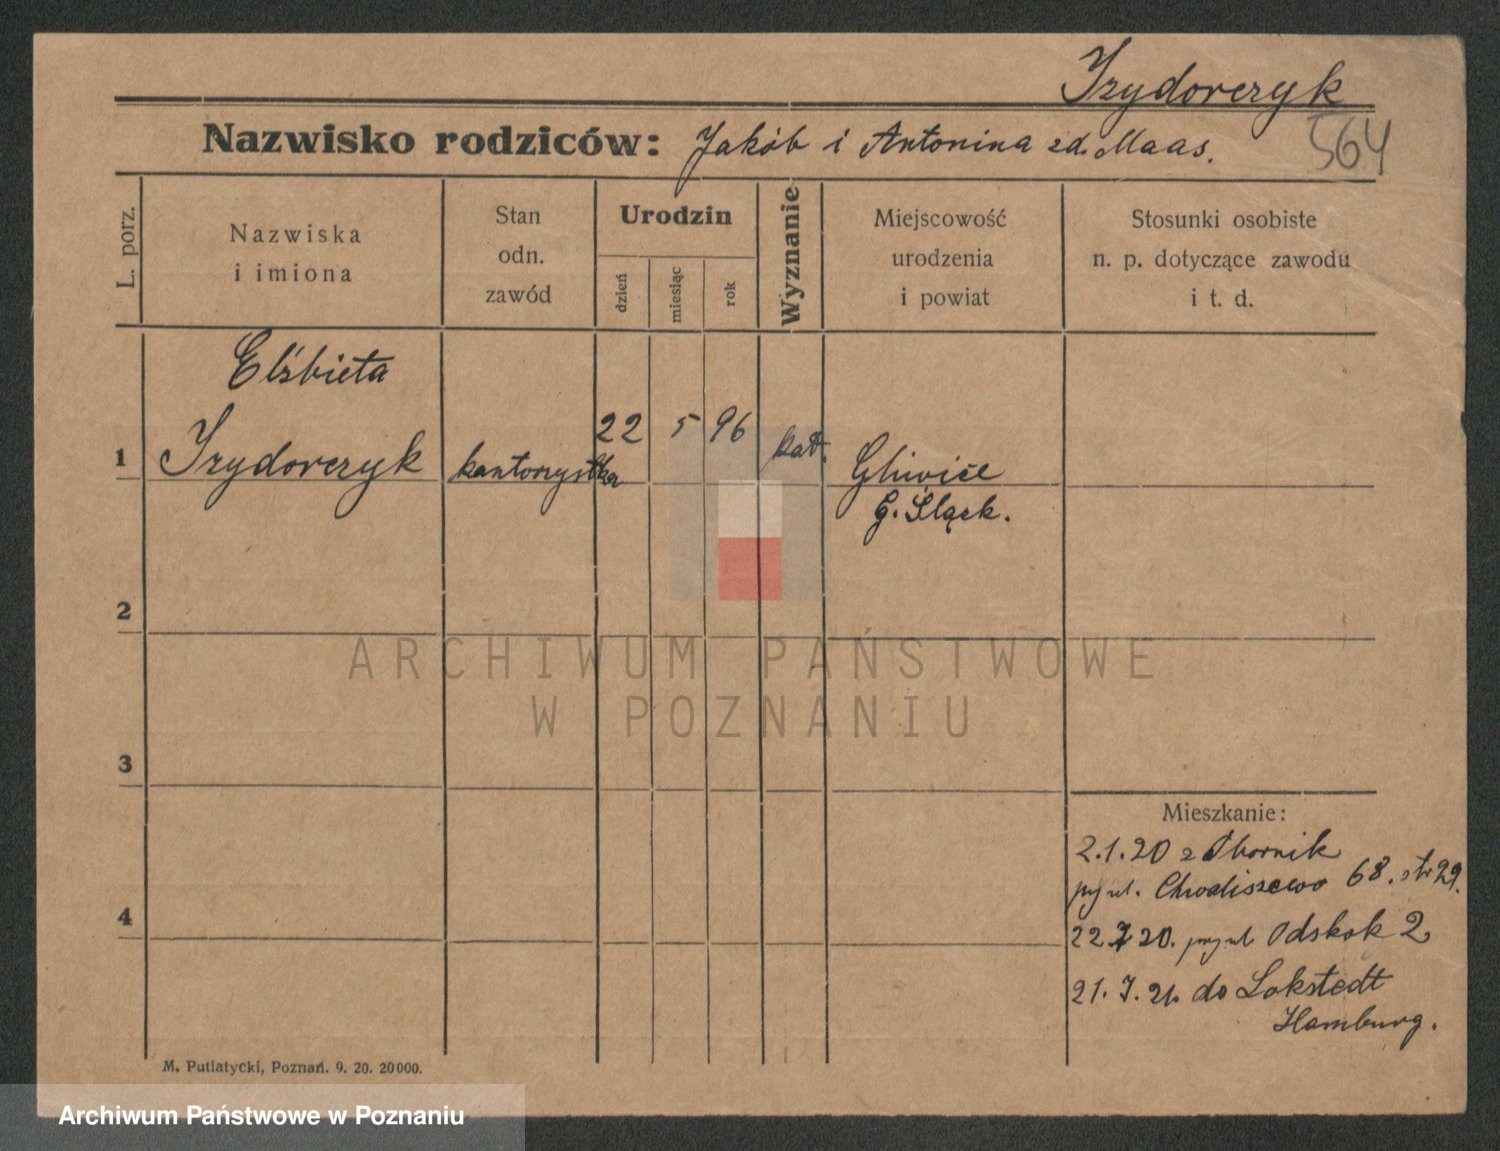 Izydorczyk
Nazwisko rodziców: Jakób i Antonina zd. Maas.
564
L. porz.
Nazwiska
i imiona
Stan
odn.
zawód
Urodzin
dzień
miesiąc
rok
Wyznanie
Miejscowość
urodzenia
i powiat
Stosunki osobiste
n. p. dotyczące zawodu
i t. d.
Elżbieta
1 Izydorczyk kantorzystka 22 5 96 kat. Gliwice
G. Śląsk.
2
3
4
ARCHIWUM PAŃSTWOWE
W POZNANIU
Mieszkanie:
2.1.20 z Obornik
przy ul. Chwaliszewo 68. str 29.
22 7 20. przy ul. Odskok 2
21. 7. 21. do Lokstedt
Hamburg.
M. Putiatycki, Poznań. 9. 20. 20000.
Archiwum Państwowe w Poznaniu